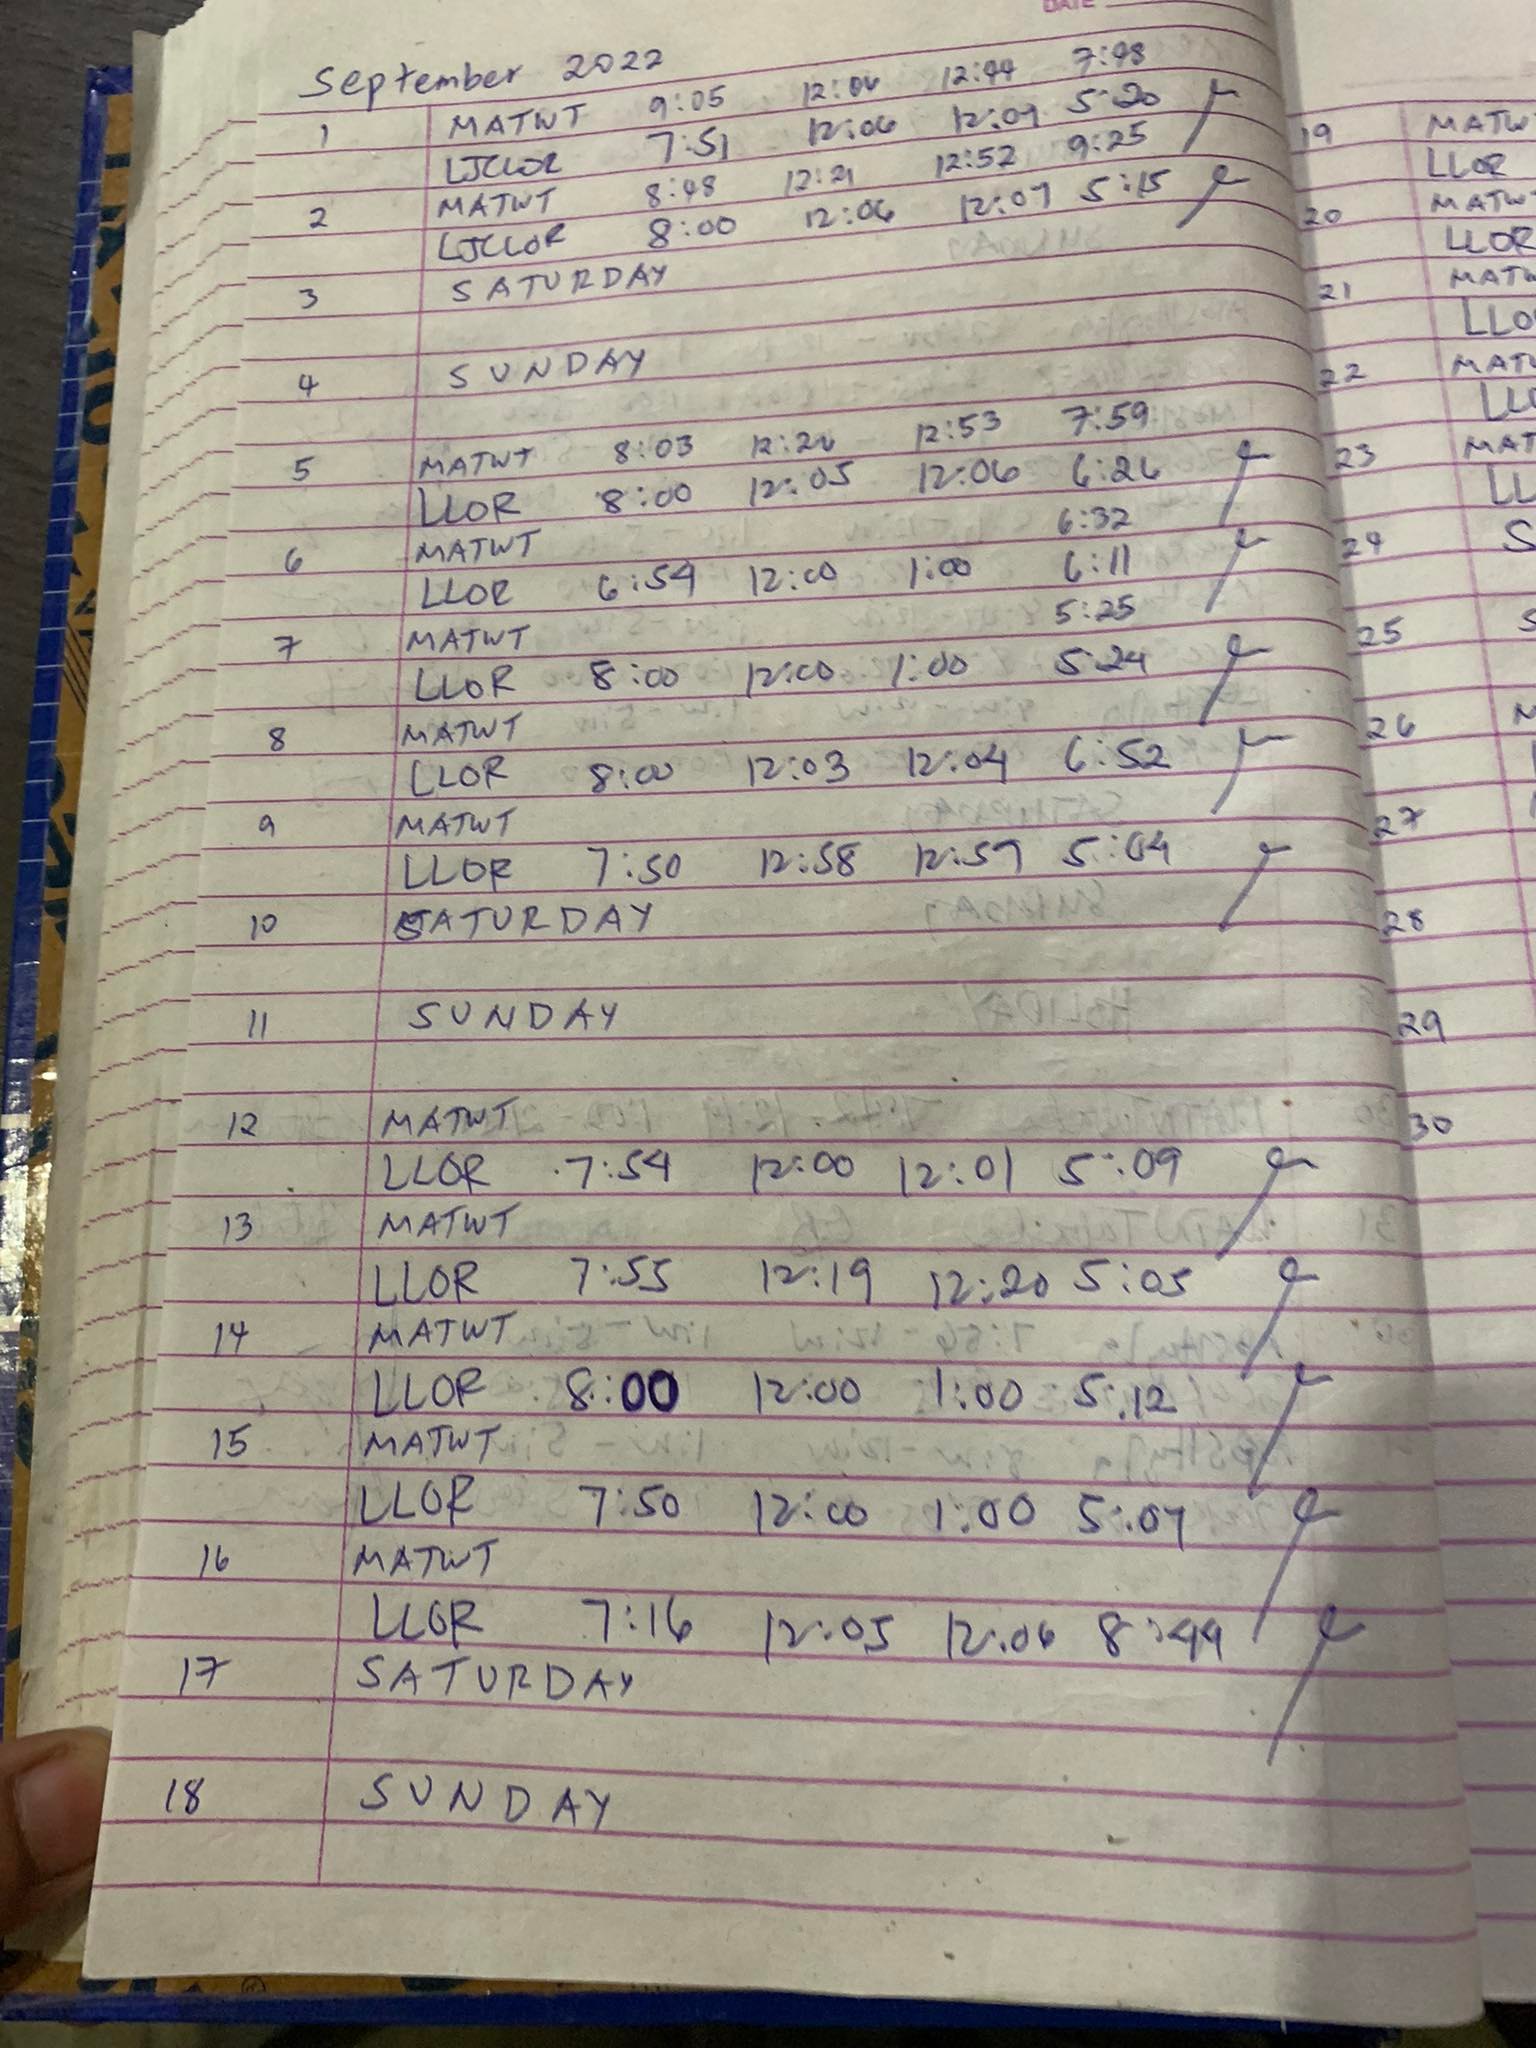 DATE
September 2022
1 MATWT 9:05 12:04 12:44 7:48
LJCLOR 7:51 12:06 12:07 5:20
2 MATWT 8:48 12:21 12:52 9:25
LJCLOR 8:00 12:06 12:07 5:15
3 SATURDAY
4 SUNDAY
5 MATWT 8:03 12:20 12:53 7:59
LLOR 8:00 12:05 12:06 6:26
6 MATWT 6:32
LLOR 6:54 12:00 1:00 6:11
7 MATWT 5:25
LLOR 8:00 12:00 1:00 5:24
8 MATWT
LLOR 8:00 12:03 12:04 6:52
9 MATWT
LLOR 7:50 12:58 12:59 5:04
10 SATURDAY
11 SUNDAY
12 MATWT
LLOR 7:54 12:00 12:01 5:09
13 MATWT
LLOR 7:55 12:19 12:20 5:05
14 MATWT
LLOR 8:00 12:00 1:00 5:12
15 MATWT
LLOR 7:50 12:00 1:00 5:07
16 MATWT
LLOR 7:16 12:05 12:06 8:44
17 SATURDAY
18 SUNDAY
19 MATWT
LLOR
20 MATW
LLOR
21 MATW
LLO
22 MATW
LLO
23 MAT
LL
24 S
25 S
26 M
27
28
29
30